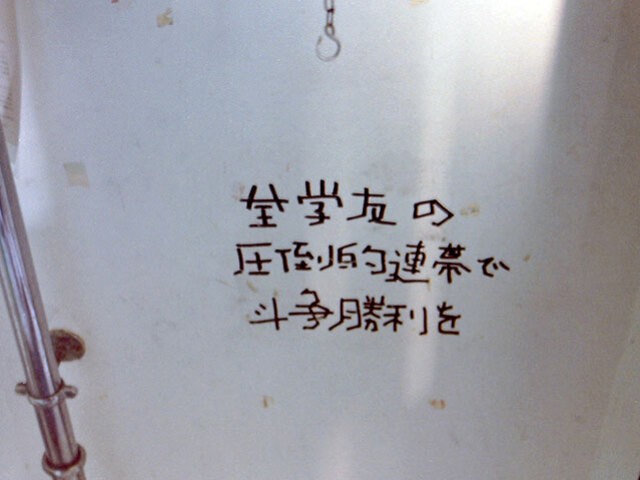 全学友の
圧倒的連帯で
斗争勝利を